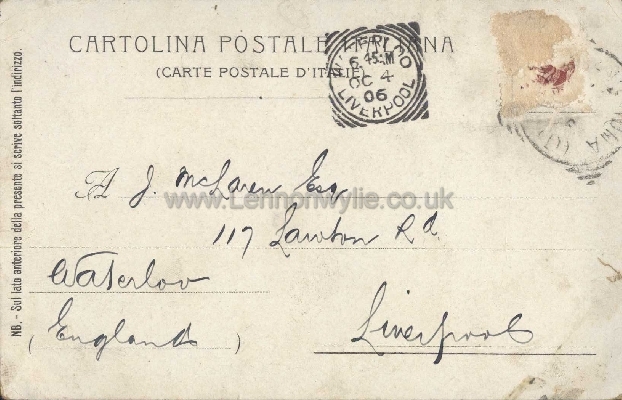 CARTOLINA POSTALE ITALIANA
(CARTE POSTALE D'ITALIE)
WATERLOO
6.45PM
OC 4
06
LIVERPOOL
NB. - Sul lato anteriore della presente si scrive soltanto l'indirizzo.
A J. McLaren Esq
www.Lennonwylie.co.uk
117 Lawton Rd
Waterloo
Liverpool
(England)